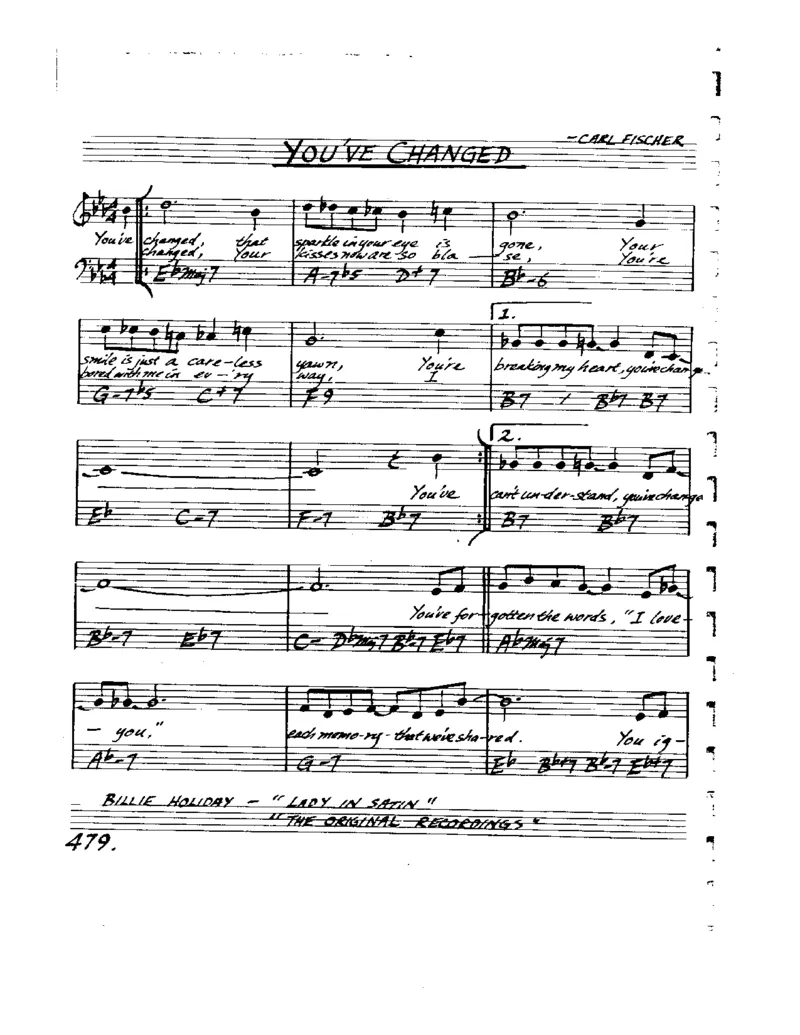 - CARL FISCHER
YOU'VE CHANGED
You've changed, that sparkle in your eye is gone, Your
changed, Your kisses now are so bla - se, You're
E♭Maj7 A-7♭5 D+7 B♭-6
1.
smile is just a care-less yawn, You're breaking my heart, you've change
bored with me in ev-'ry way, I
G-7♭5 C+7 F9 B7 / B♭7 B7
2.
You've can't un-der-stand, you've change
E♭ C-7 F-7 B♭7 B7 B♭7
You've for-gotten the words, "I love-
B♭-7 E♭7 C- D♭maj7 B♭-7 E♭7 A♭Maj7
- you," each memo-ry-that we've sha-red. You ig-
A♭-7 G-7 E♭ B♭+7 B♭-7 E♭+7
BILLIE HOLIDAY - "LADY IN SATIN"
"THE ORIGINAL RECORDINGS"
479.